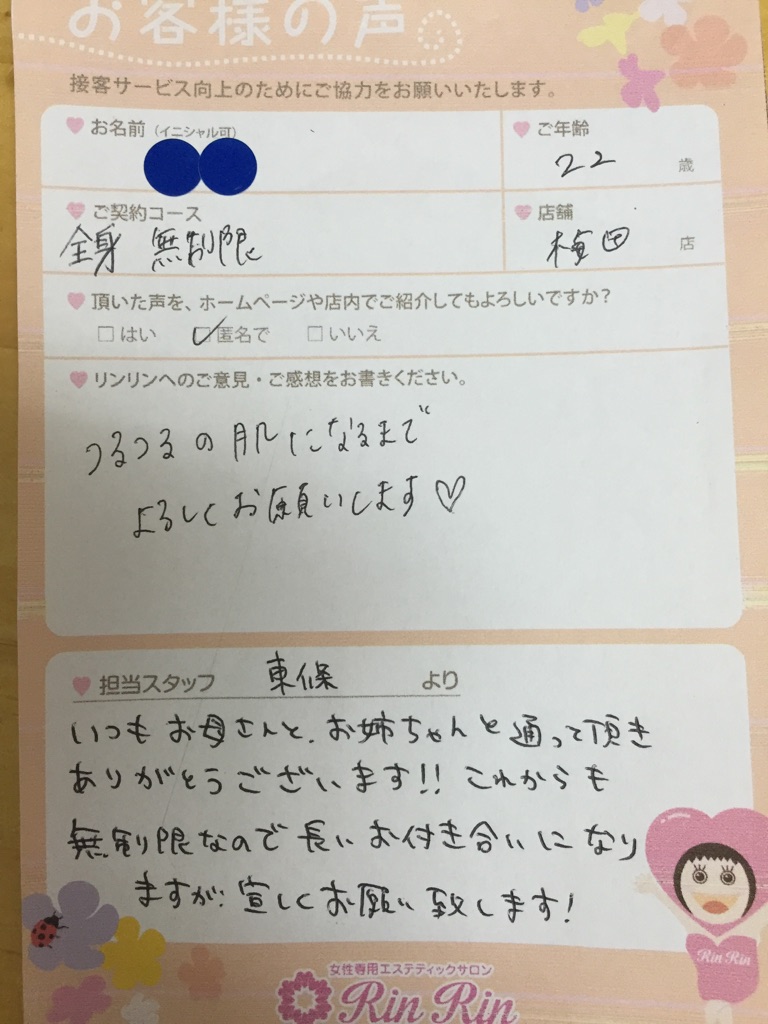 お客様の声
接客サービス向上のためにご協力をお願いいたします。
お名前（イニシャル可）
ご年齢
22 歳
ご契約コース
全身 無制限
店舗
梅田 店
頂いた声を、ホームページや店内でご紹介してもよろしいですか？
□はい ☑匿名で □いいえ
リンリンへのご意見・ご感想をお書きください。
つるつるの肌になるまで
よろしくお願いします♡
担当スタッフ 東條 より
いつもお母さんと、お姉ちゃんと通って頂き
ありがとうございます!! これからも
無制限なので長いお付き合いになり
ますが、宜しくお願い致します!
Rin Rin
女性専用エステティックサロン
Rin Rin